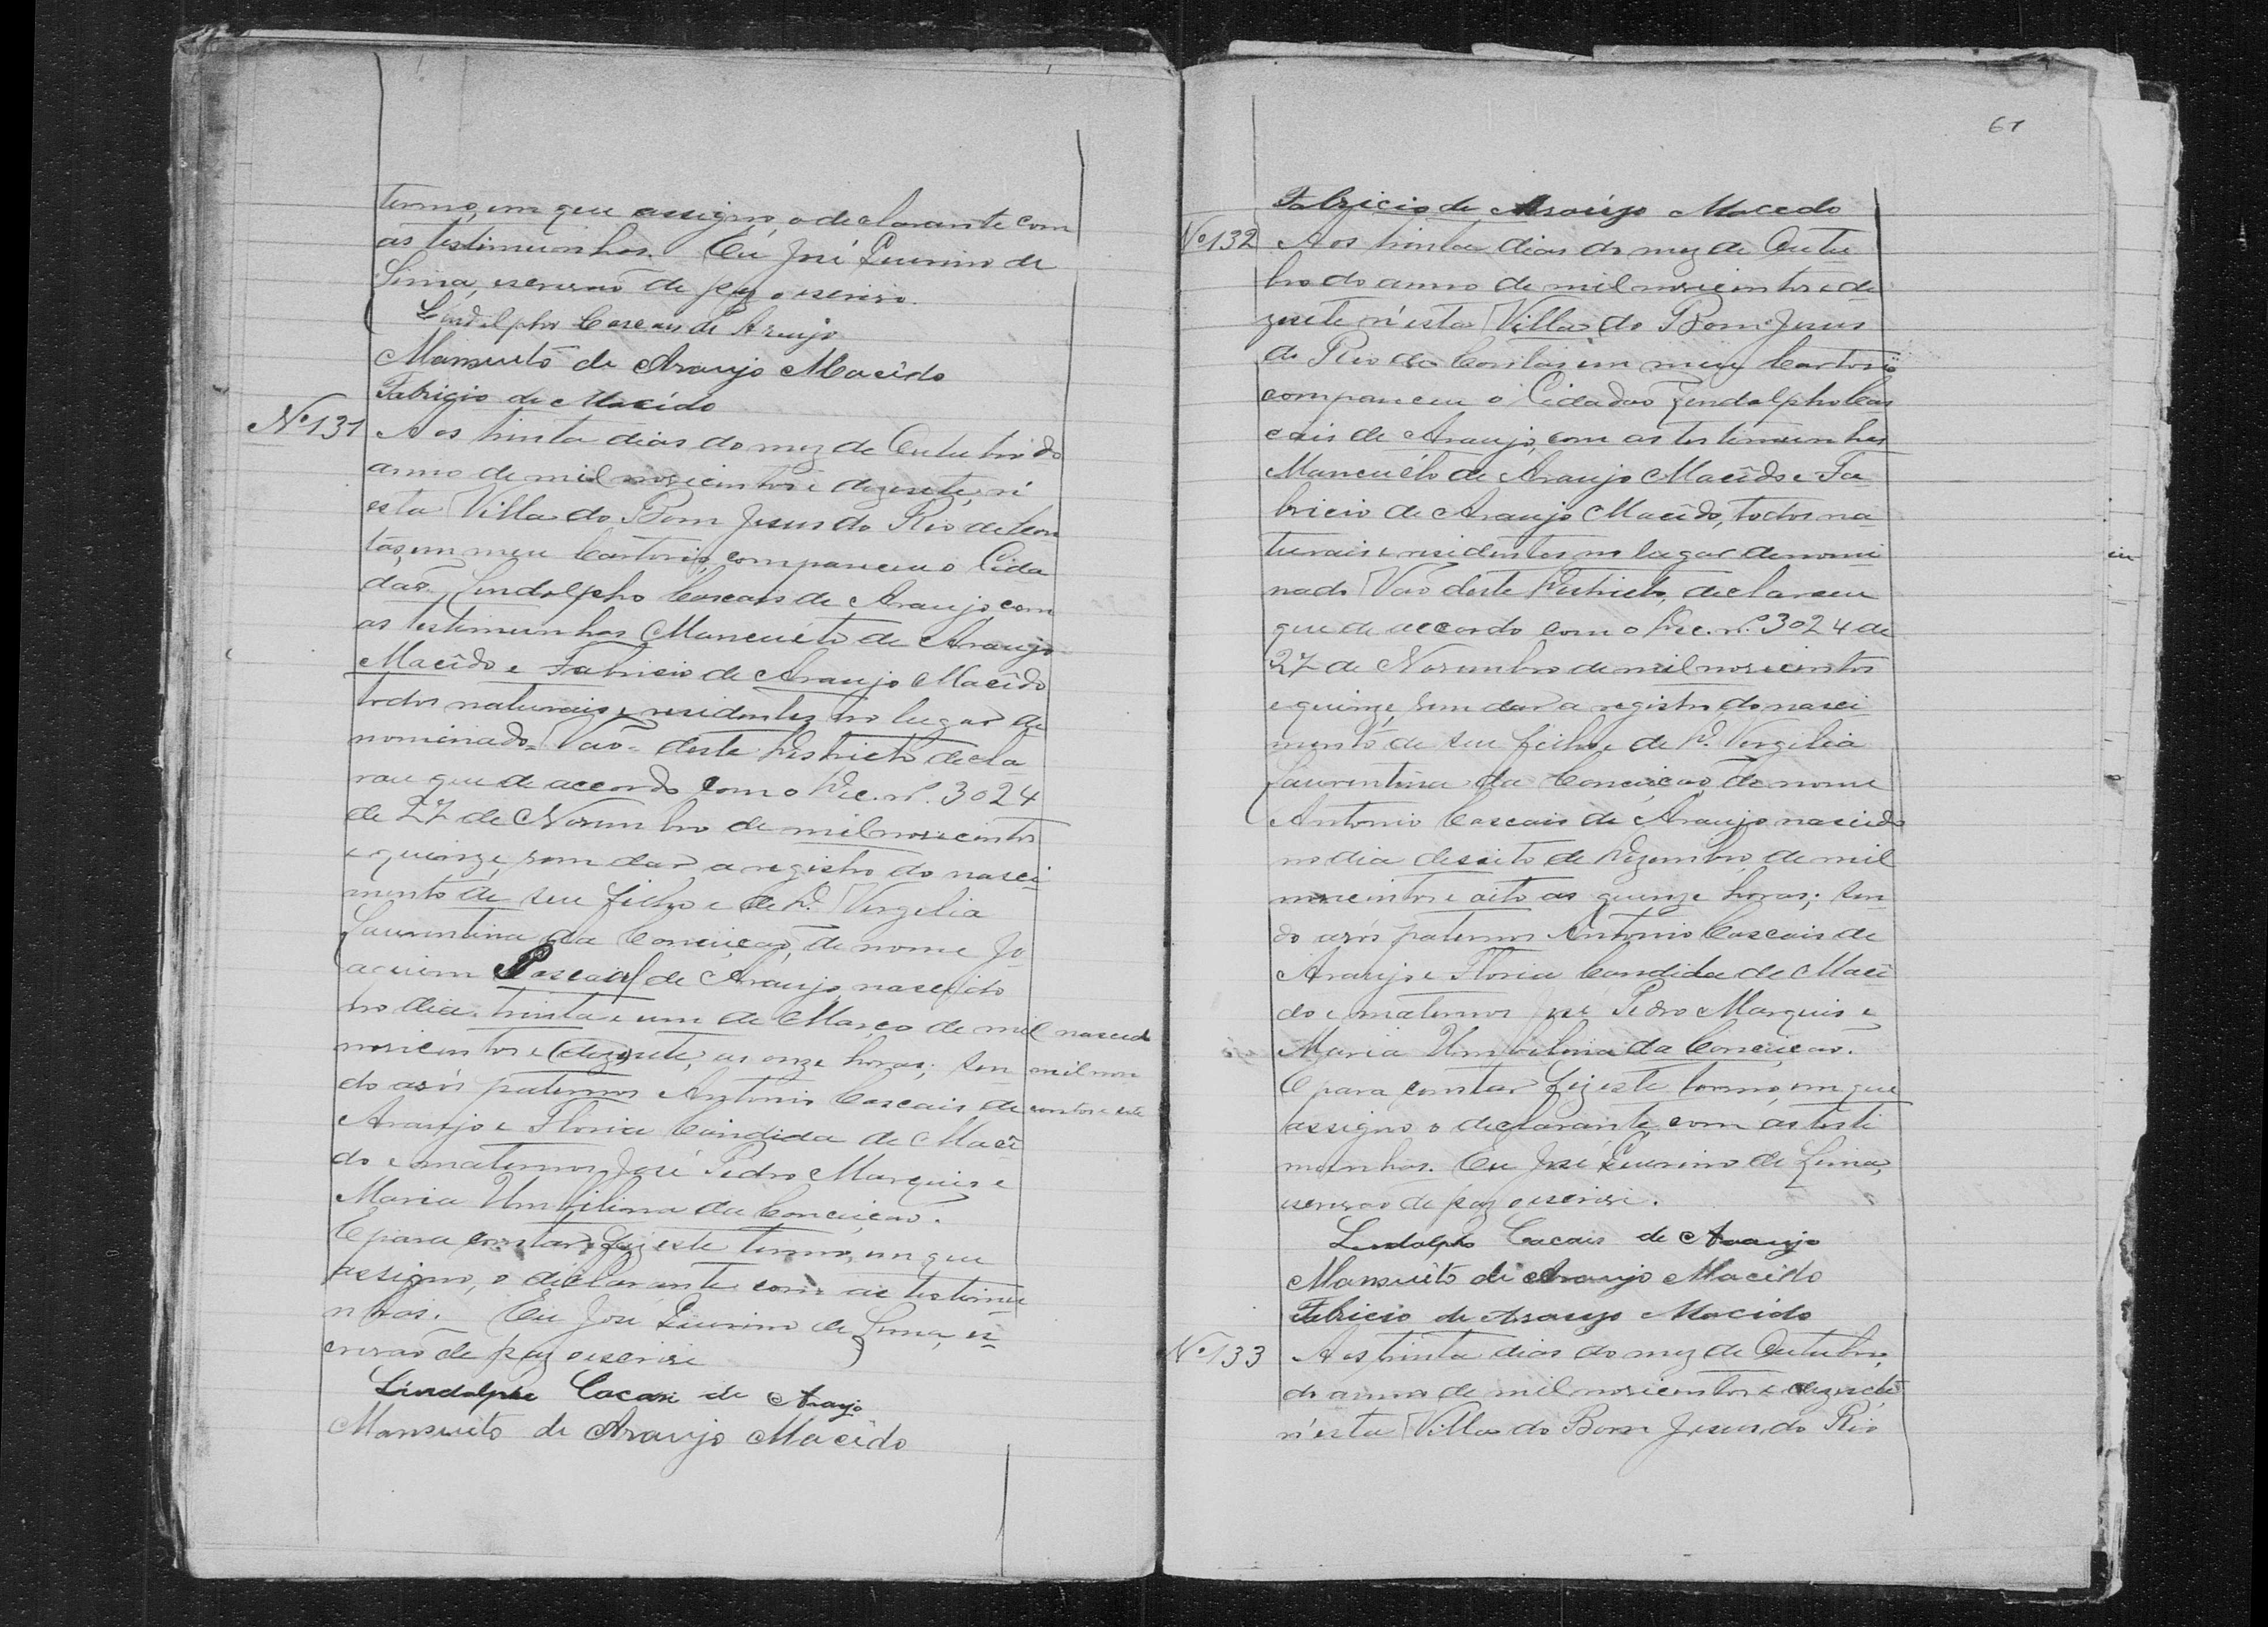 termo, em que assigno, o declarante com
as testimunhas. Eu José Quirino de
Lima, escrivão de paz o escrivo.
Lindolpho Cascais de Araujo
Mansuêto de Araujo Macêdo
Fabrigio de Macêdo
Nº 131 Aos trinta dias do mez de Outubro do
anno de mil novicentos e dezesete, n'
esta Villa do Bom Jesus do Rio de Con
tas, em meu Cartorio, compareceu o Cida
dão Lindolpho Cascais de Araujo com
as testemunhas Mancuêto de Araujo
Macêdo e Fabricio de Araujo Macêdo
todos naturais e residentes no lugar de
nominado = Vão = deste Districto decla
rou que de accordo com o Dec. nº. 3024
de 27 de Novembro de mil novecentos
e quinze, vem dar a registro do nasci
mento de seu filho e de D. Vergilia
Laurentina da Conceição, de nome Jo
aquim Pascoal de Araujo nascido
no dia trinta e um de Março de mil nascido
novicentos e (dezesete), as onze horas; sen mil nove
do avós paternos Antonio Cascais de centos e sete
Araujo e Floria Candida de Macê
do e maternos José Pedro Marquis e
Maria Umbilina da Conceição.
E para constar fiz este termo, em que
assigno, o declarante com as testimu
nhas. Eu José Quirino de Lima, es
crivão de paz o escrivi
Lindolpho Cacais de Araujo
Mansuêto de Araujo Macêdo
61
Fabricio de Araújo Macedo
Nº 132 Aos trinta dias do mez de Outu
bro do anno de mil novicentos e de
zesete n'esta Villa do Bom Jesus
do Rio de Contas em meu Cartorio
compareceu o Cidadão Lindolpho Cas
cais de Araujo, com as testemunhas
Mancuêto de Araujo Macêdo e Fa
bricio de Araujo Macêdo, todos na
turais e residentes no lugar denomi
nado Vão deste Districto, declarou
que de accordo com o Dec. nº. 3024 de
27 de Novembro de mil novecentos
e quinze, vem dar a registro do nasci
mento de seu filho e de D. Vergilia
Laurentina da Conceição de nome
Antonio Cascais de Araujo nascido
no dia desoito de Dezembro de mil
novecentos e oito as quinze horas; sen
do avós paternos Antonio Cascais de
Araujo e Floria Candida de Macê
do e maternos José Pedro Marquis e
Maria Umbilina da Conceição.
E para constar fiz este termo, em que
assigno o declarante com as testi
munhas. Eu José Quirino de Lima,
escrivão de paz o escrivi.
Lindolpho Cacais de Araujo
Mansuêto de Araujo Macêdo
Fabricio de Araujo Macêdo
Nº 133 Aos trinta dias do mez de Outubro,
do anno de mil novicentos e dezesete
n'esta Villa do Bom Jesus do Rio